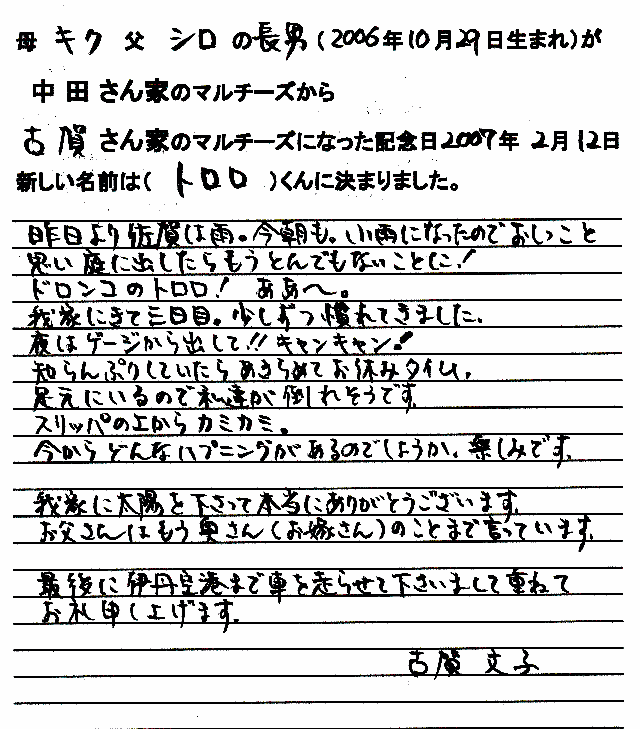 母 キク 父 シロ の長男(2006年10月29日生まれ)が
中田さん家のマルチーズから
古賀さん家のマルチーズになった記念日2007年 2月12日
新しい名前は( トロロ )くんに決まりました。
昨日より佐賀は雨。今朝も。小雨になったのでおしっこと
思い庭に出したらもうとんでもないことに!
ドロンコのトロロ! ああ〜。
我家にきて三日目。少しずつ慣れてきました。
夜はゲージから出して!! キャンキャン!
知らんぷりしていたらあきらめてお休みタイム。
足元にいるので私達が倒れそうです。
スリッパの上からカミカミ。
今からどんなハプニングがあるのでしょうか、楽しみです。
我家に太陽を下さって本当にありがとうございます。
お父さんはもう奥さん(お嫁さん)のことまで言っています。
最後に伊丹空港まで車を走らせて下さいまして重ねて
お礼申し上げます。
古賀 文子